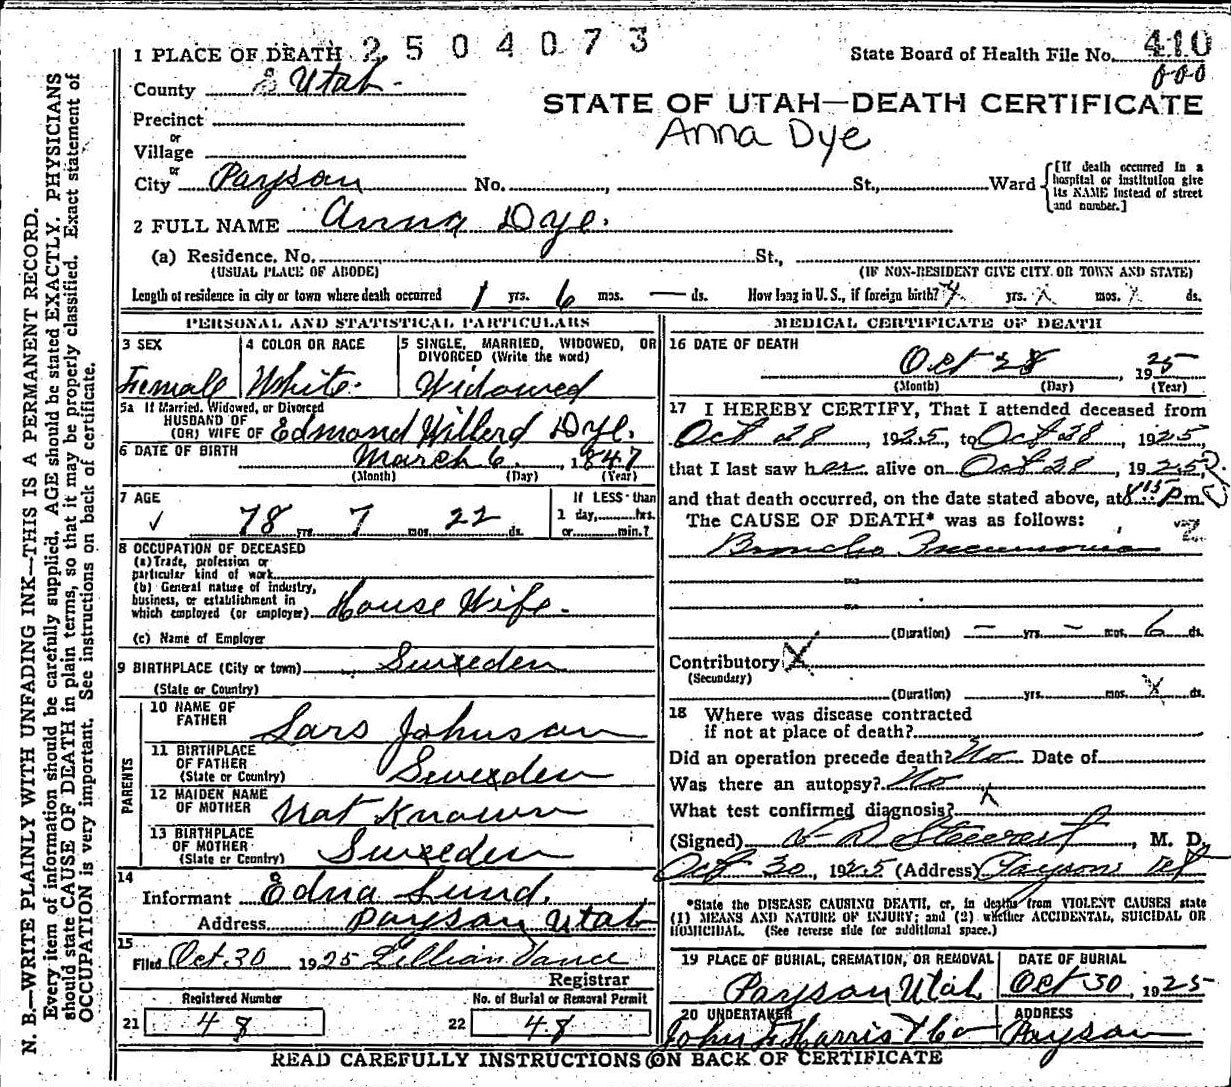 1 PLACE OF DEATH 2504073 State Board of Health File No. 410
County Utah 000
STATE OF UTAH—DEATH CERTIFICATE
Precinct
Anna Dye
or
Village
or
City Payson No. , St., Ward
[If death occurred in a hospital or institution give its NAME instead of street and number.]
2 FULL NAME Anna Dye.
(a) Residence. No. St.,
(USUAL PLACE OF ABODE) (IF NON-RESIDENT GIVE CITY OR TOWN AND STATE)
Length of residence in city or town where death occurred 1 yrs. 6 mos. — ds. How long in U.S., if foreign birth? yrs. mos. ds.
PERSONAL AND STATISTICAL PARTICULARS
3 SEX 4 COLOR OR RACE 5 SINGLE, MARRIED, WIDOWED, OR
DIVORCED (Write the word)
Female White. Widowed
5a If Married, Widowed, or Divorced
HUSBAND OF
(OR) WIFE OF Edmond Willerd Dye.
6 DATE OF BIRTH March 6, 1847
(Month) (Day) (Year)
7 AGE If LESS than
✓ 78 yrs. 7 mos. 22 ds. 1 day, hrs.
or min.?
8 OCCUPATION OF DECEASED
(a) Trade, profession or
particular kind of work
(b) General nature of industry,
business, or establishment in
which employed (or employer) House Wife.
(c) Name of Employer
9 BIRTHPLACE (City or town) Sweden
(State or Country)
PARENTS
10 NAME OF
FATHER Lars Johnson
11 BIRTHPLACE
OF FATHER
(State or Country) Sweden
12 MAIDEN NAME
OF MOTHER Not Known
13 BIRTHPLACE
OF MOTHER
(State or Country) Sweden
14
Informant Edna Lund.
Address Payson Utah
15
Filed Oct 30 1925 Lillian Vance
Registrar
Registered Number No. of Burial or Removal Permit
21 48 22 48
MEDICAL CERTIFICATE OF DEATH
16 DATE OF DEATH
Oct 28, 1925
(Month) (Day) (Year)
17 I HEREBY CERTIFY, That I attended deceased from
Oct 28, 1925, to Oct 28, 1925,
that I last saw her alive on Oct 28, 1925,
and that death occurred, on the date stated above, at 8 15 P m.
The CAUSE OF DEATH* was as follows:
Broncho Pneumonia
(Duration) — yrs. — mos. 6 ds.
Contributory X
(Secondary)
(Duration) yrs. mos. X ds.
18 Where was disease contracted
if not at place of death?
Did an operation precede death? No Date of
Was there an autopsy? No
What test confirmed diagnosis? X
(Signed) Stewart, M. D.
Oct 30, 1925 (Address) Payson Ut
*State the DISEASE CAUSING DEATH, or, in deaths from VIOLENT CAUSES state
(1) MEANS AND NATURE OF INJURY; and (2) whether ACCIDENTAL, SUICIDAL OR
HOMICIDAL. (See reverse side for additional space.)
19 PLACE OF BURIAL, CREMATION, OR REMOVAL DATE OF BURIAL
Payson Utah Oct 30, 1925
20 UNDERTAKER ADDRESS
John Harris & Co Payson
READ CAREFULLY INSTRUCTIONS ON BACK OF CERTIFICATE
N. B.—WRITE PLAINLY WITH UNFADING INK—THIS IS A PERMANENT RECORD.
Every item of information should be carefully supplied. AGE should be stated EXACTLY. PHYSICIANS
should state CAUSE OF DEATH in plain terms, so that it may be properly classified. Exact statement of
OCCUPATION is very important. See instructions on back of certificate.